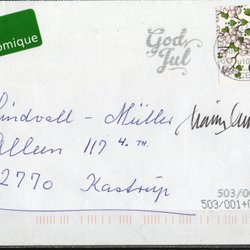 omique
God
Jul
Lindvall - Müller
Alleen 117 4. TH.
2770 Kastrup
503/00
503/001+0